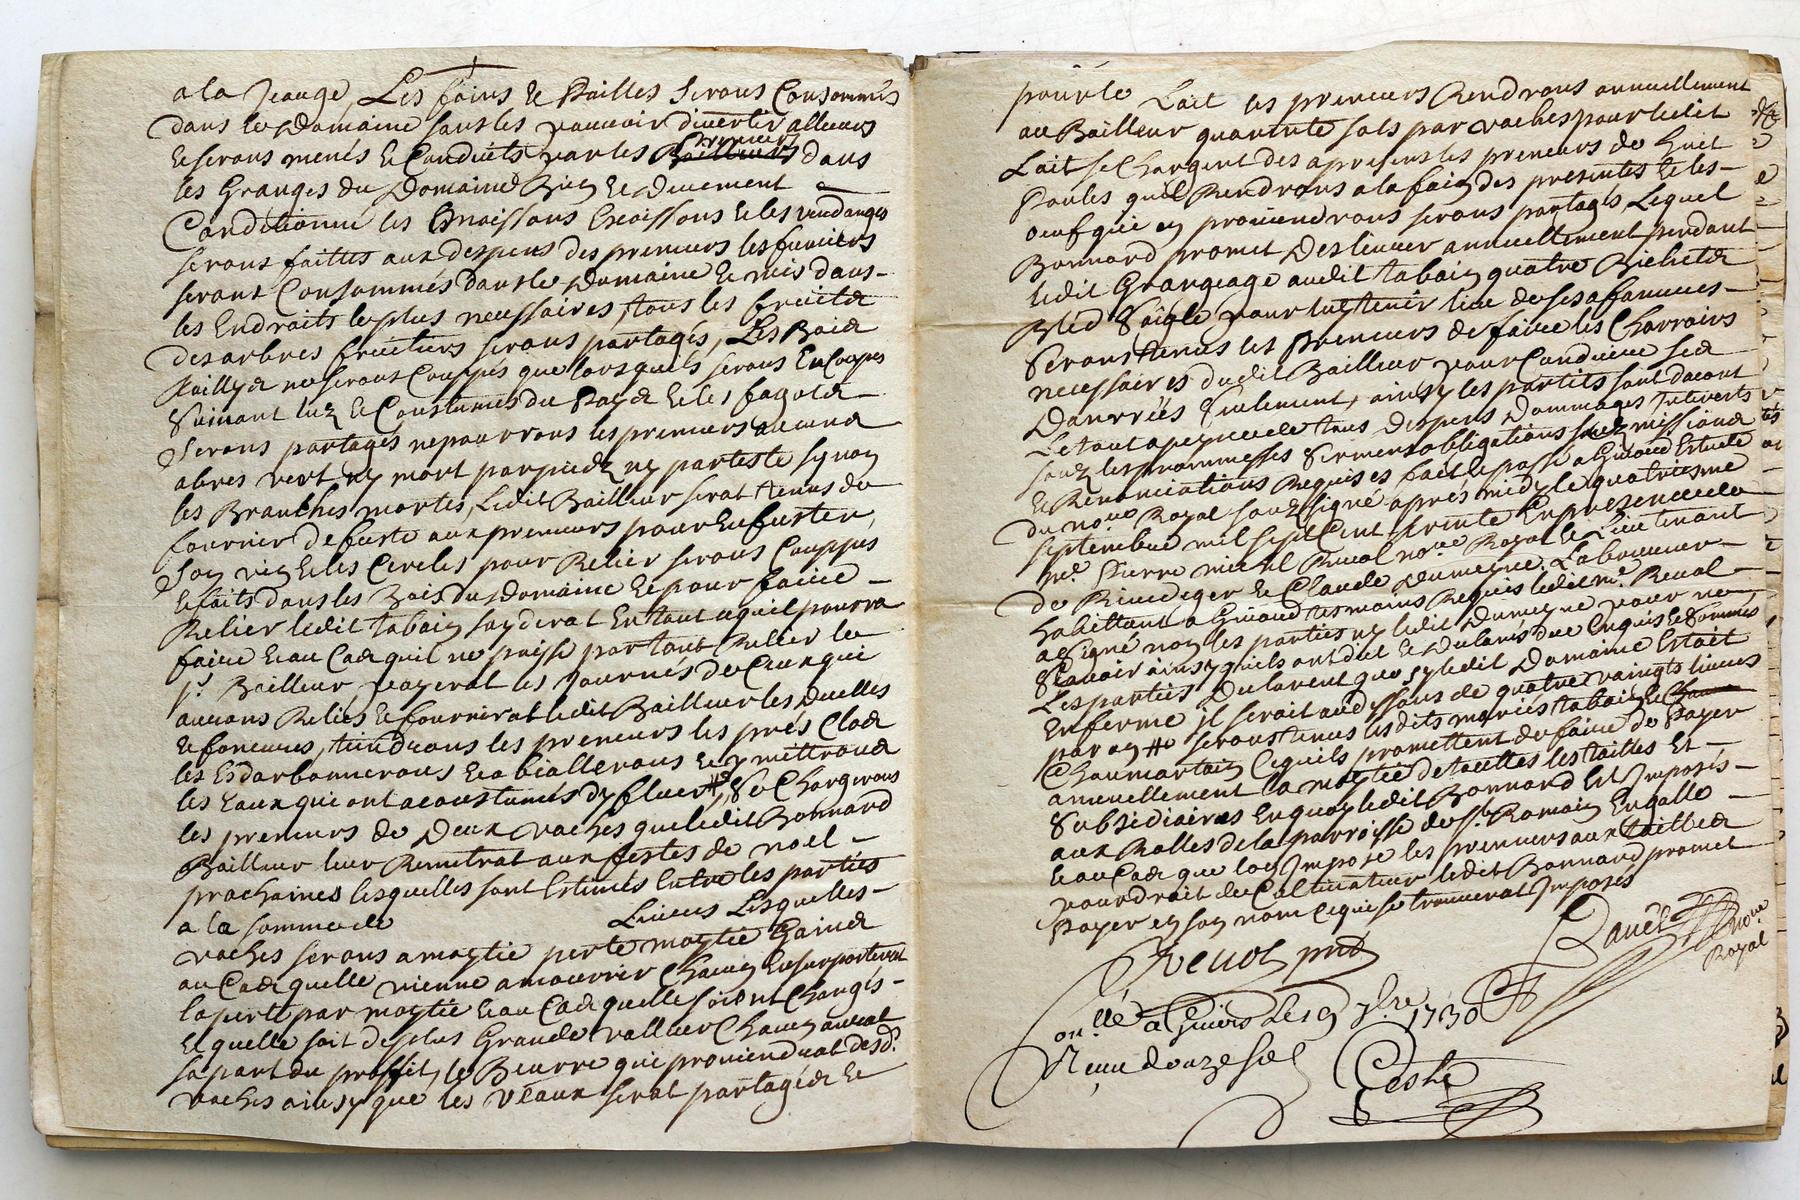 a la Jeauge, Les foins & Pailles serons Consommés
dans le Domaine sans les pouvoir divertir allieurs
preneurs
& serons menés & Conduits par les Bailleurs dans
les Granges du Domaine Bien & duement
Conditionné les Moissons & les vendanges
serons faittes aux despens des preneurs les fumiers
serons Consommés dans le Domaine & mis dans
les Endroits les plus necessaires, tous les fruits
des arbres fruitiers serons partagés, Les Bois
Taillys ne serons Couppés que lors quils serons En Coupes
Suivant luz & Coustumes du Pays & les fagots
Serons partagés ne pourrons les preneurs aucuns
abres vert ny mort par pieds ny par teste synon
les Branches mortes, Ledit Bailleur serat tenus de
fournir de fuste aux preneurs pour Enfuster,
son vin & les Cercles pour Relier serons Couppés
& faits dans les Bois du Domaine & pour faire
Relier ledit tabain sayderat En tant quil pourra
faire & au Cas quil ne puisse par tout Relier le
sr. Bailleur payerat les Journés de Ceux qui
aurons Reliés & fournirat ledit Bailleur les Duelles
& fonceures, tiendrons les preneurs les prés Clos
les Esdarbonnerons & abiallerons & y mettrons
les Eaux qui ont acoustumés dy fluer, Se Chargerons
les preneurs de Deux vaches que ledit Bonnard
Bailleur leur Remetrat aux festes de noel
prochaines lesquelles sont Estimés Entre les parties
a la somme de Livres Lesquelles
vaches serons a moytie perte moytie Gains
au Cas quelle vienne a mourrir Chacun En supporterat
la perte par moytie & au Cas quelle soient Changés
& quelle soit de plus Grande valleur Chacun aurat
sa part du proffit, le Beurre qui proviendrat desd.
vaches ainsy que les Veaux serat partagés &
pour le Lait les preneurs Rendrons annuellement
au Bailleur quarente sols par vaches pour ledit
Lait se Chargent des apresent les preneurs de huit
Poules quil Rendrons a la fain des presentes & les
oeuf qui en proviendrons serons partagés, Lequel
Bonnard promet Deslivrer annuellement pendant
ledit Grangeage audit tabain quatre Bichets
Bled Seigle pour luy tenir lieu de ses affanures
Serons tenus les Preneurs de faire les Charrois
necessaires dudit Bailleur pour Conduire ses
Danrrées Seulement, ainsy les parties sont dacort
Le tout a peyne de tous Despens Dommages Interests
souz les prommesses Serment obligations soumissions
& Renonciations Requises fait & passé a Estude
du nore Royal souz signé aprés midy le quatriesme
septembre mil sept Cent trente En presence de
me. Pierre michel Reval nore Royal & Lieutenant
de Rivedeger & Claude Dumeyne Laboureur
habittant a tesmoins Requis ledit me. Reval
a signé non les parties ny ledit Dumeyne pour ne
Scavoir ainsy quils ont dit & declarés de ce Enquis & sommés
Les parties Declarent que sy ledit Domaine Estoit
En ferme il seroit au dyssous de quatre vaingts livres
par an # serons tenus lesdits mariés tabain &
Chaumartain Ce quils promettent de faire de Payer
annuellement la moytie de touttes les tailles Et
Subsidiaires En quoy ledit Bonnard Est Imposés
aux Rolles de la parroisse de St. Romain En Jalle
& au Cas que lon Impose les preneurs aux tailles
pour droit de Cultivateur ledit Bonnard promet
Payer en son nom Ce qui se trouverat Imposés
Reval pnt
nore
Royal
onllé a le 9 7bre 1730
Receu douze sols